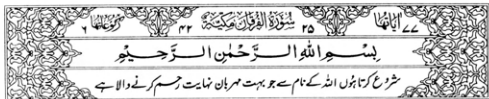 ٧٧ اٰيَاتُهَا ٢٥ سُوْرَةُ الْفُرْقَانِ مَكِّيَّةٌ ٤٢ رُكُوْعَاتُهَا ٦
بِسْمِ اللّٰهِ الرَّحْمٰنِ الرَّحِيْمِ
شروع کرتا ہوں اللہ کے نام سے جو بہت مہربان نہایت رحم کرنے والا ہے